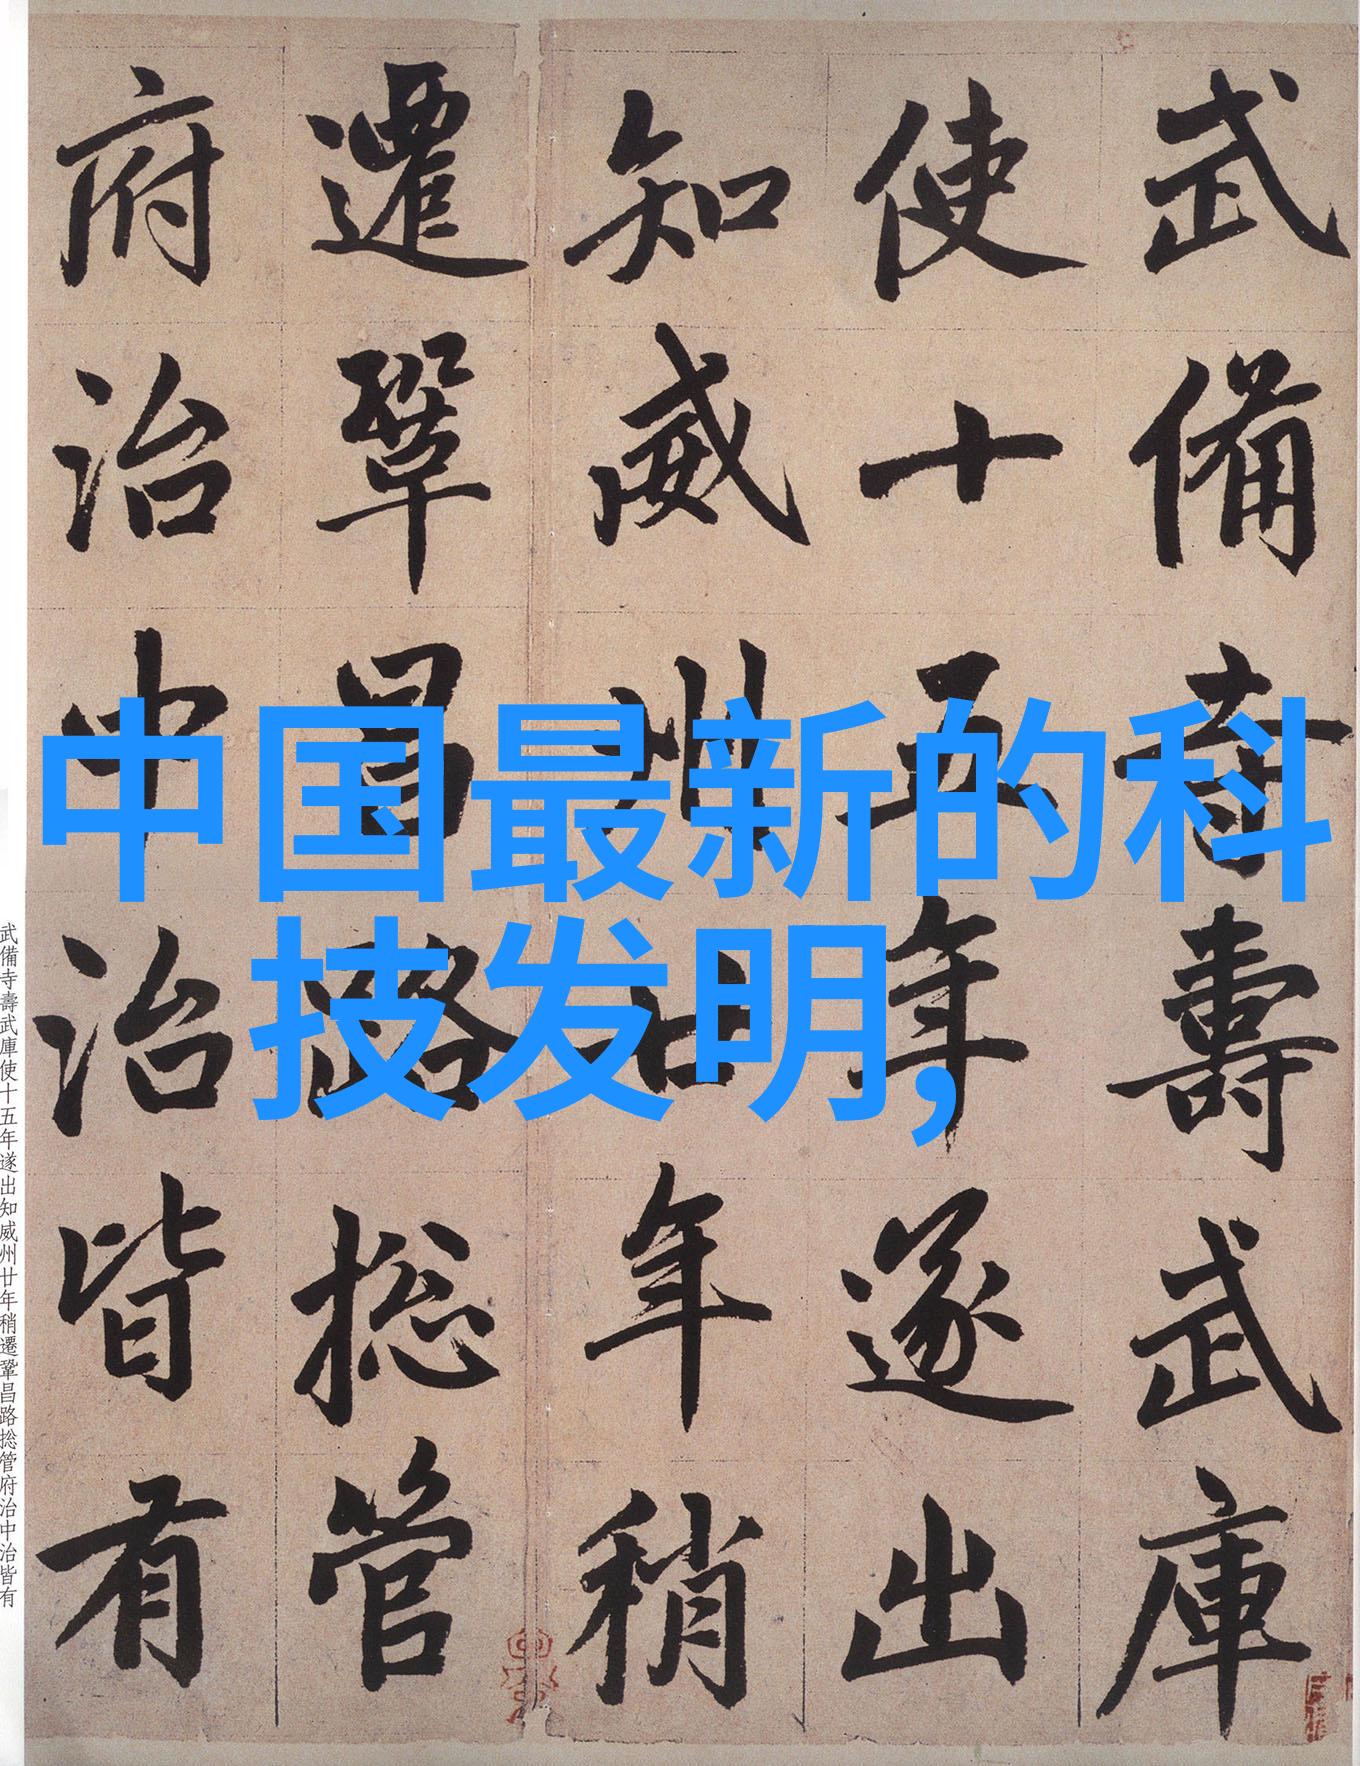 武備寺壽武庫
使十五年遂出
知威州廿年稍
遷鞏昌路捴管
府治中治皆有
中国最新的科
技发明，
武備寺壽武庫使十五年遂出知威州廿年稍遷鞏昌路捴管府治中治皆有